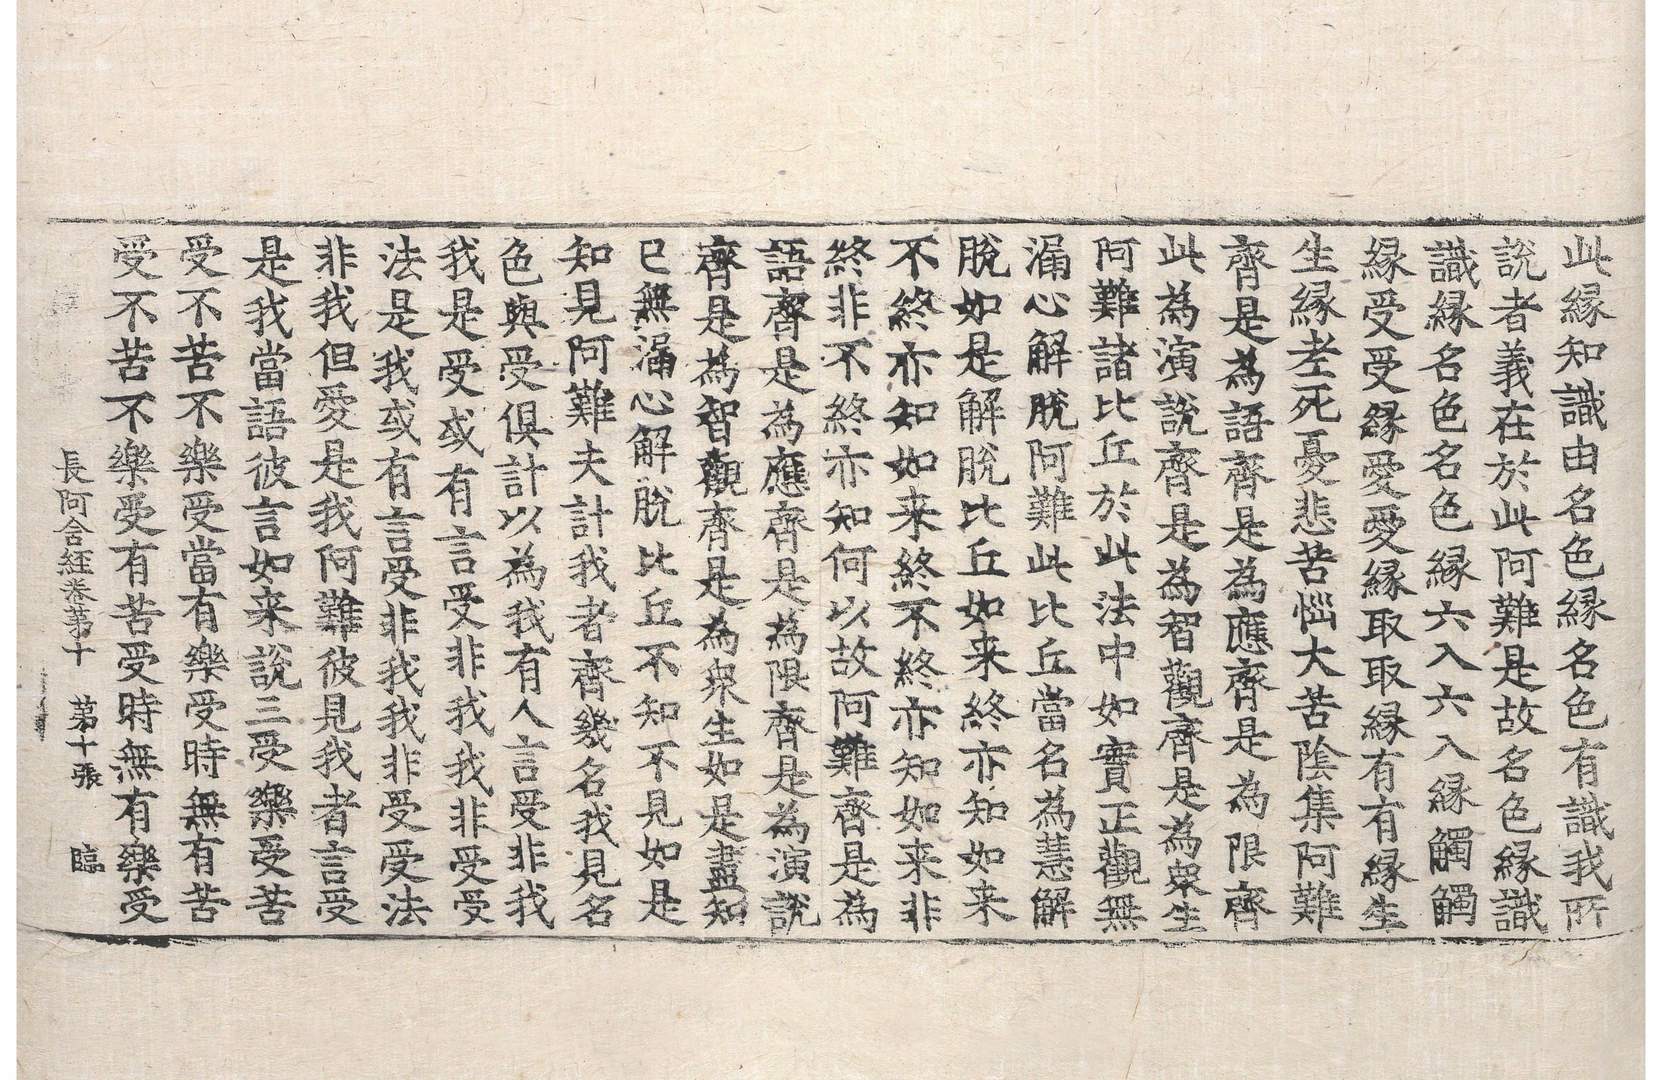 此縁知識由名色縁名色有識我所
說者義在於此阿難是故名色縁識
識縁名色名色縁六入六入縁觸觸
縁受受縁愛愛縁取取縁有有縁生
生縁老死憂悲苦惱大苦陰集阿難
齊是為語齊是為應齊是為限齊
此為演說齊是為智觀齊是為衆生
阿難諸比丘於此法中如實正觀無
漏心解脫阿難此比丘當名為慧解
脫如是解脫比丘如来終亦知如来
不終亦知如来終不終亦知如来非
終非不終亦知何以故阿難齊是為
語齊是為應齊是為限齊是為演說
齊是為智觀齊是為衆生如是盡知
已無漏心解脫比丘不知不見如是
知見阿難夫計我者齊幾名我見名
色與受俱計以為我有人言受非我
我是受或有言受非我我非受受
法是我或有言受非我我非受受法
非我但愛是我阿難彼見我者言受
是我當語彼言如来說三受樂受苦
受不苦不樂受當有樂受時無有苦
受不苦不樂受有苦受時無有樂受
長阿含経卷苐十 苐十張 臨